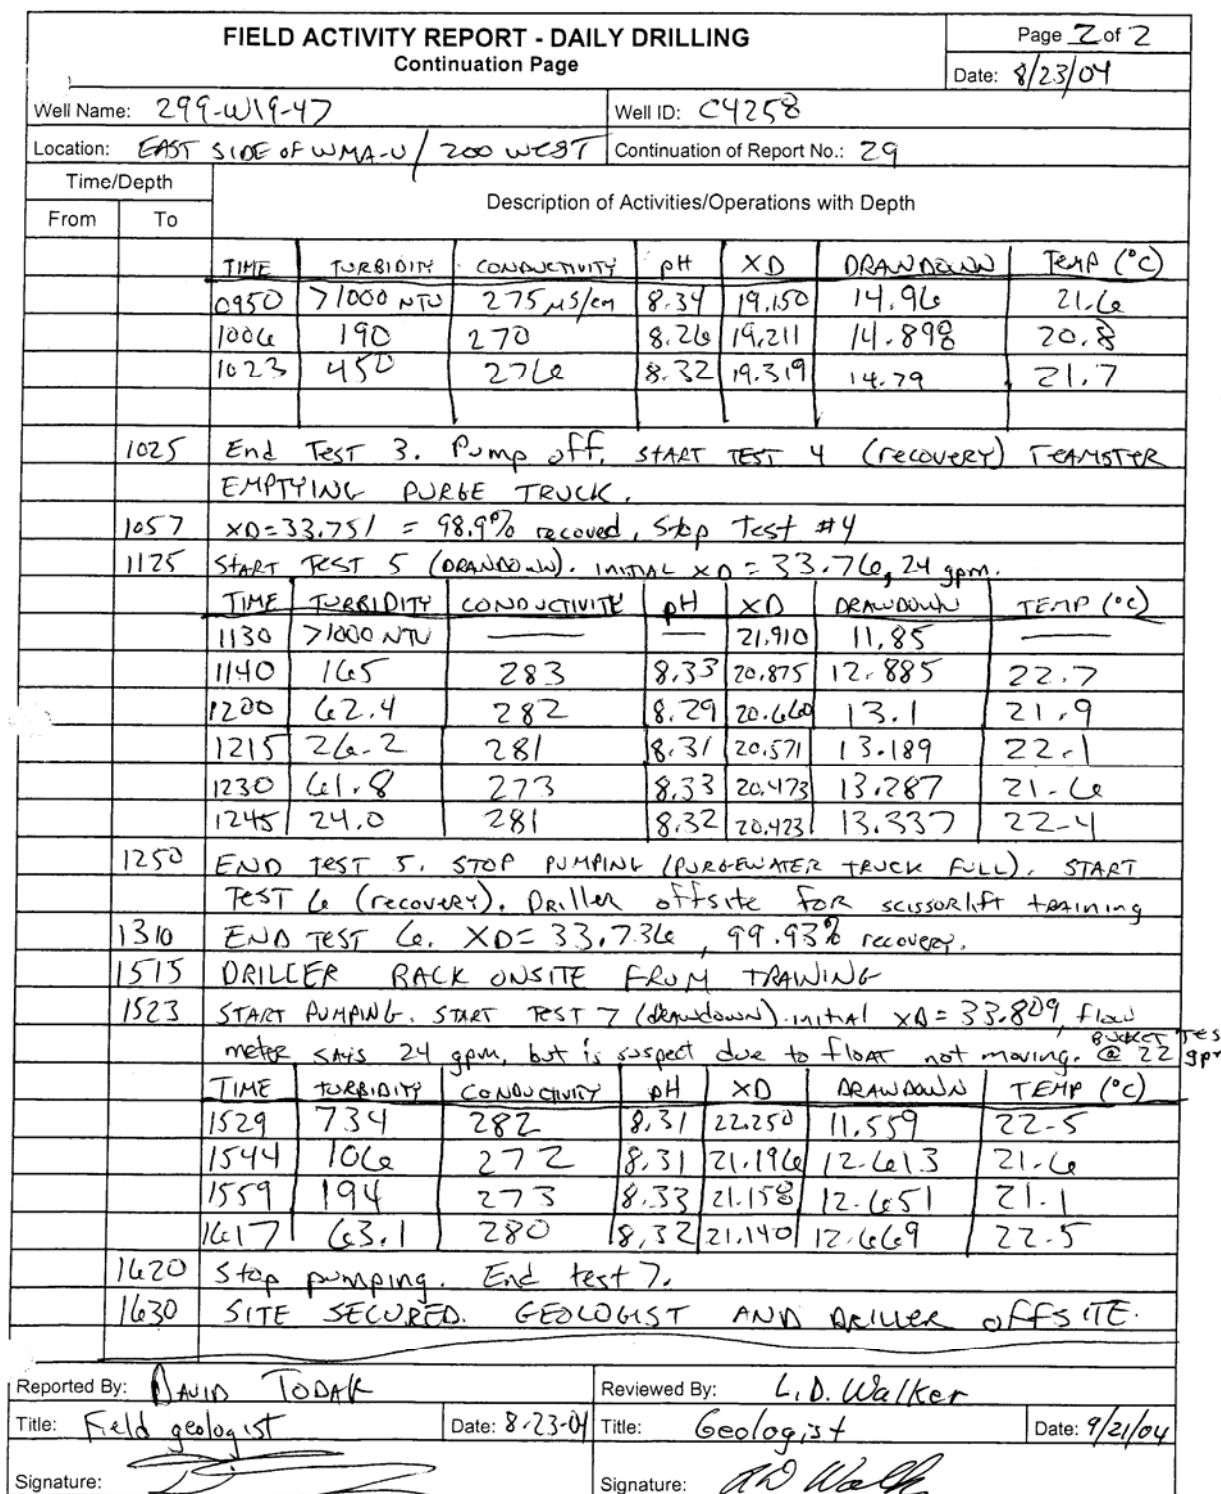 FIELD ACTIVITY REPORT - DAILY DRILLING
Continuation Page
Page 2 of 2
Date: 8/23/04
Well Name: 299-W19-47
Well ID: C4258
Location: EAST SIDE OF WMA-U / 200 WEST
Continuation of Report No.: 29
Time/Depth
From To
Description of Activities/Operations with Depth
TIME TURBIDITY CONDUCTIVITY pH XD DRAWDOWN TEMP (°C)
0950 >1000 NTU 275 µS/cm 8.34 19.150 14.96 21.6
1006 190 270 8.26 19.211 14.898 20.8
1023 450 276 8.32 19.319 14.79 21.7
1025 End Test 3. Pump off. START TEST 4 (recovery) TEAMSTER
EMPTYING PURGE TRUCK.
1057 XD=33.751 = 98.9% recoved, Stop Test #4
1125 START TEST 5 (DRAWDOWN). INITIAL XD = 33.76, 24 gpm.
TIME TURBIDITY CONDUCTIVITE pH XD DRAWDOWN TEMP (°C)
1130 >1000 NTU — — 21.910 11.85 —
1140 165 283 8.33 20.875 12.885 22.7
1200 62.4 282 8.29 20.660 13.1 21.9
1215 26.2 281 8.31 20.571 13.189 22.1
1230 61.8 273 8.33 20.473 13.287 21.6
1245 24.0 281 8.32 20.423 13.337 22.4
1250 END TEST 5. STOP PUMPING (PURGEWATER TRUCK FULL). START
TEST 6 (recovery). Driller offsite for scissorlift training
1310 END TEST 6. XD= 33.736, 99.93% recovery.
1515 DRILLER BACK ONSITE FROM TRAINING
1523 START PUMPING. START TEST 7 (drawdown). initial XD = 33.809, flow
meter says 24 gpm, but is suspect due to float not moving. BUCKET TES
@ 22 gpm
TIME TURBIDITY CONDUCTIVITY pH XD DRAWDOWN TEMP (°C)
1529 734 282 8.31 22.250 11.559 22.5
1544 106 272 8.31 21.196 12.613 21.6
1559 194 273 8.33 21.158 12.651 21.1
1617 63.1 280 8.32 21.140 12.669 22.5
1620 Stop pumping. End test 7.
1630 SITE SECURED. GEOLOGIST AND DRILLER OFFSITE.
Reported By: DAVID TODAK
Reviewed By: L.D. Walker
Title: Field geologist
Date: 8-23-04
Title: Geologist
Date: 9/21/04
Signature:
Signature: LD Walk